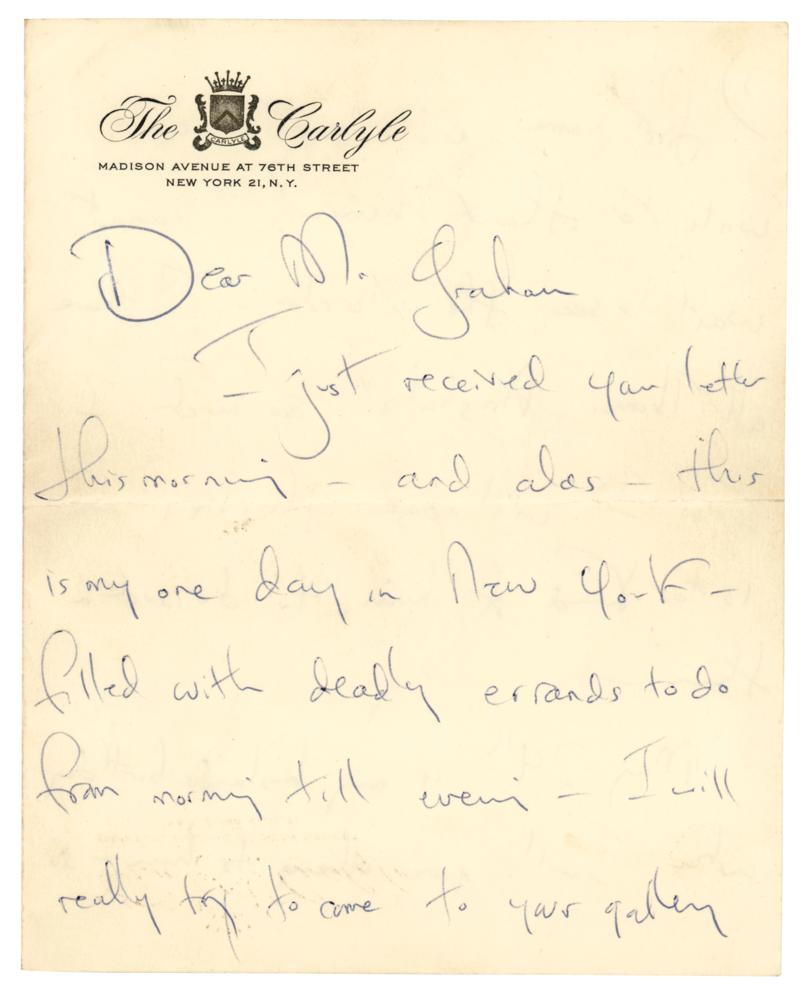 The Carlyle
CARLYLE
MADISON AVENUE AT 76TH STREET
NEW YORK 21, N.Y.
Dear Mr. Graham
I just received your letter
this morning – and alas – this
is my one day in New York –
filled with deadly errands to do
from morning till evening – I will
really try to come to your gallery